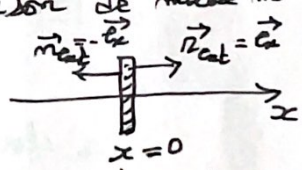 de
$\vec{n}_{ext} = -\vec{e}_x$ $\vec{n}_{ext} = \vec{e}_x$
x
x = 0